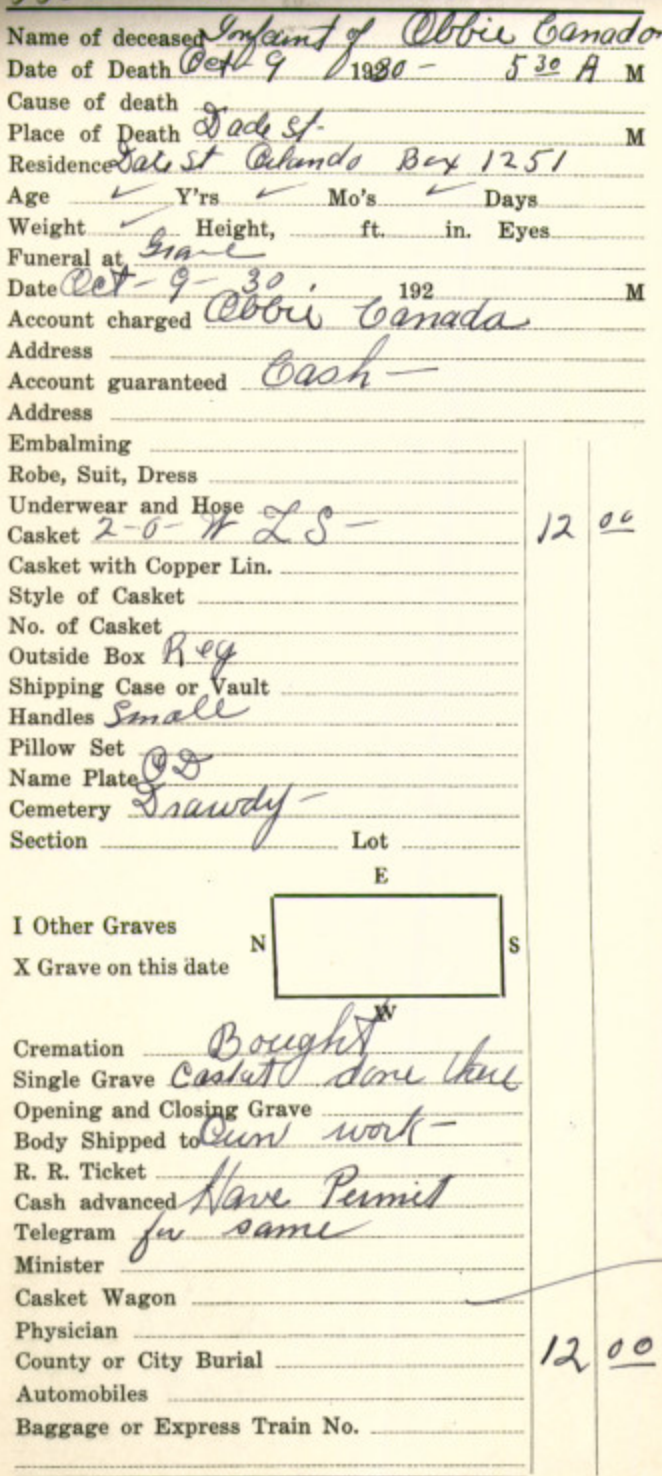 Name of deceased Infant of Obbie Canado
Date of Death Oct 9 1930 - 5 30 A M
Cause of death
Place of Death Dade St. M
Residence Dale St Orlando Box 1251
Age ✓ Y'rs ✓ Mo's ✓ Days
Weight ✓ Height, ft. in. Eyes
Funeral at Grave
Date Oct - 9 - 30. 192 M
Account charged Obbie Canada
Address
Account guaranteed Cash -
Address
Embalming
Robe, Suit, Dress
Underwear and Hose
Casket 2-0- W L S - 12 00
Casket with Copper Lin.
Style of Casket
No. of Casket
Outside Box Reg
Shipping Case or Vault
Handles Small
Pillow Set
Name Plate O D
Cemetery Drawdy -
Section Lot
E
I Other Graves
N S
X Grave on this date
W
Cremation Bought
Single Grave Casket done their
Opening and Closing Grave
Body Shipped to Own work -
R. R. Ticket
Cash advanced Have Permit
Telegram for same
Minister
Casket Wagon
Physician
County or City Burial 12 00
Automobiles
Baggage or Express Train No.